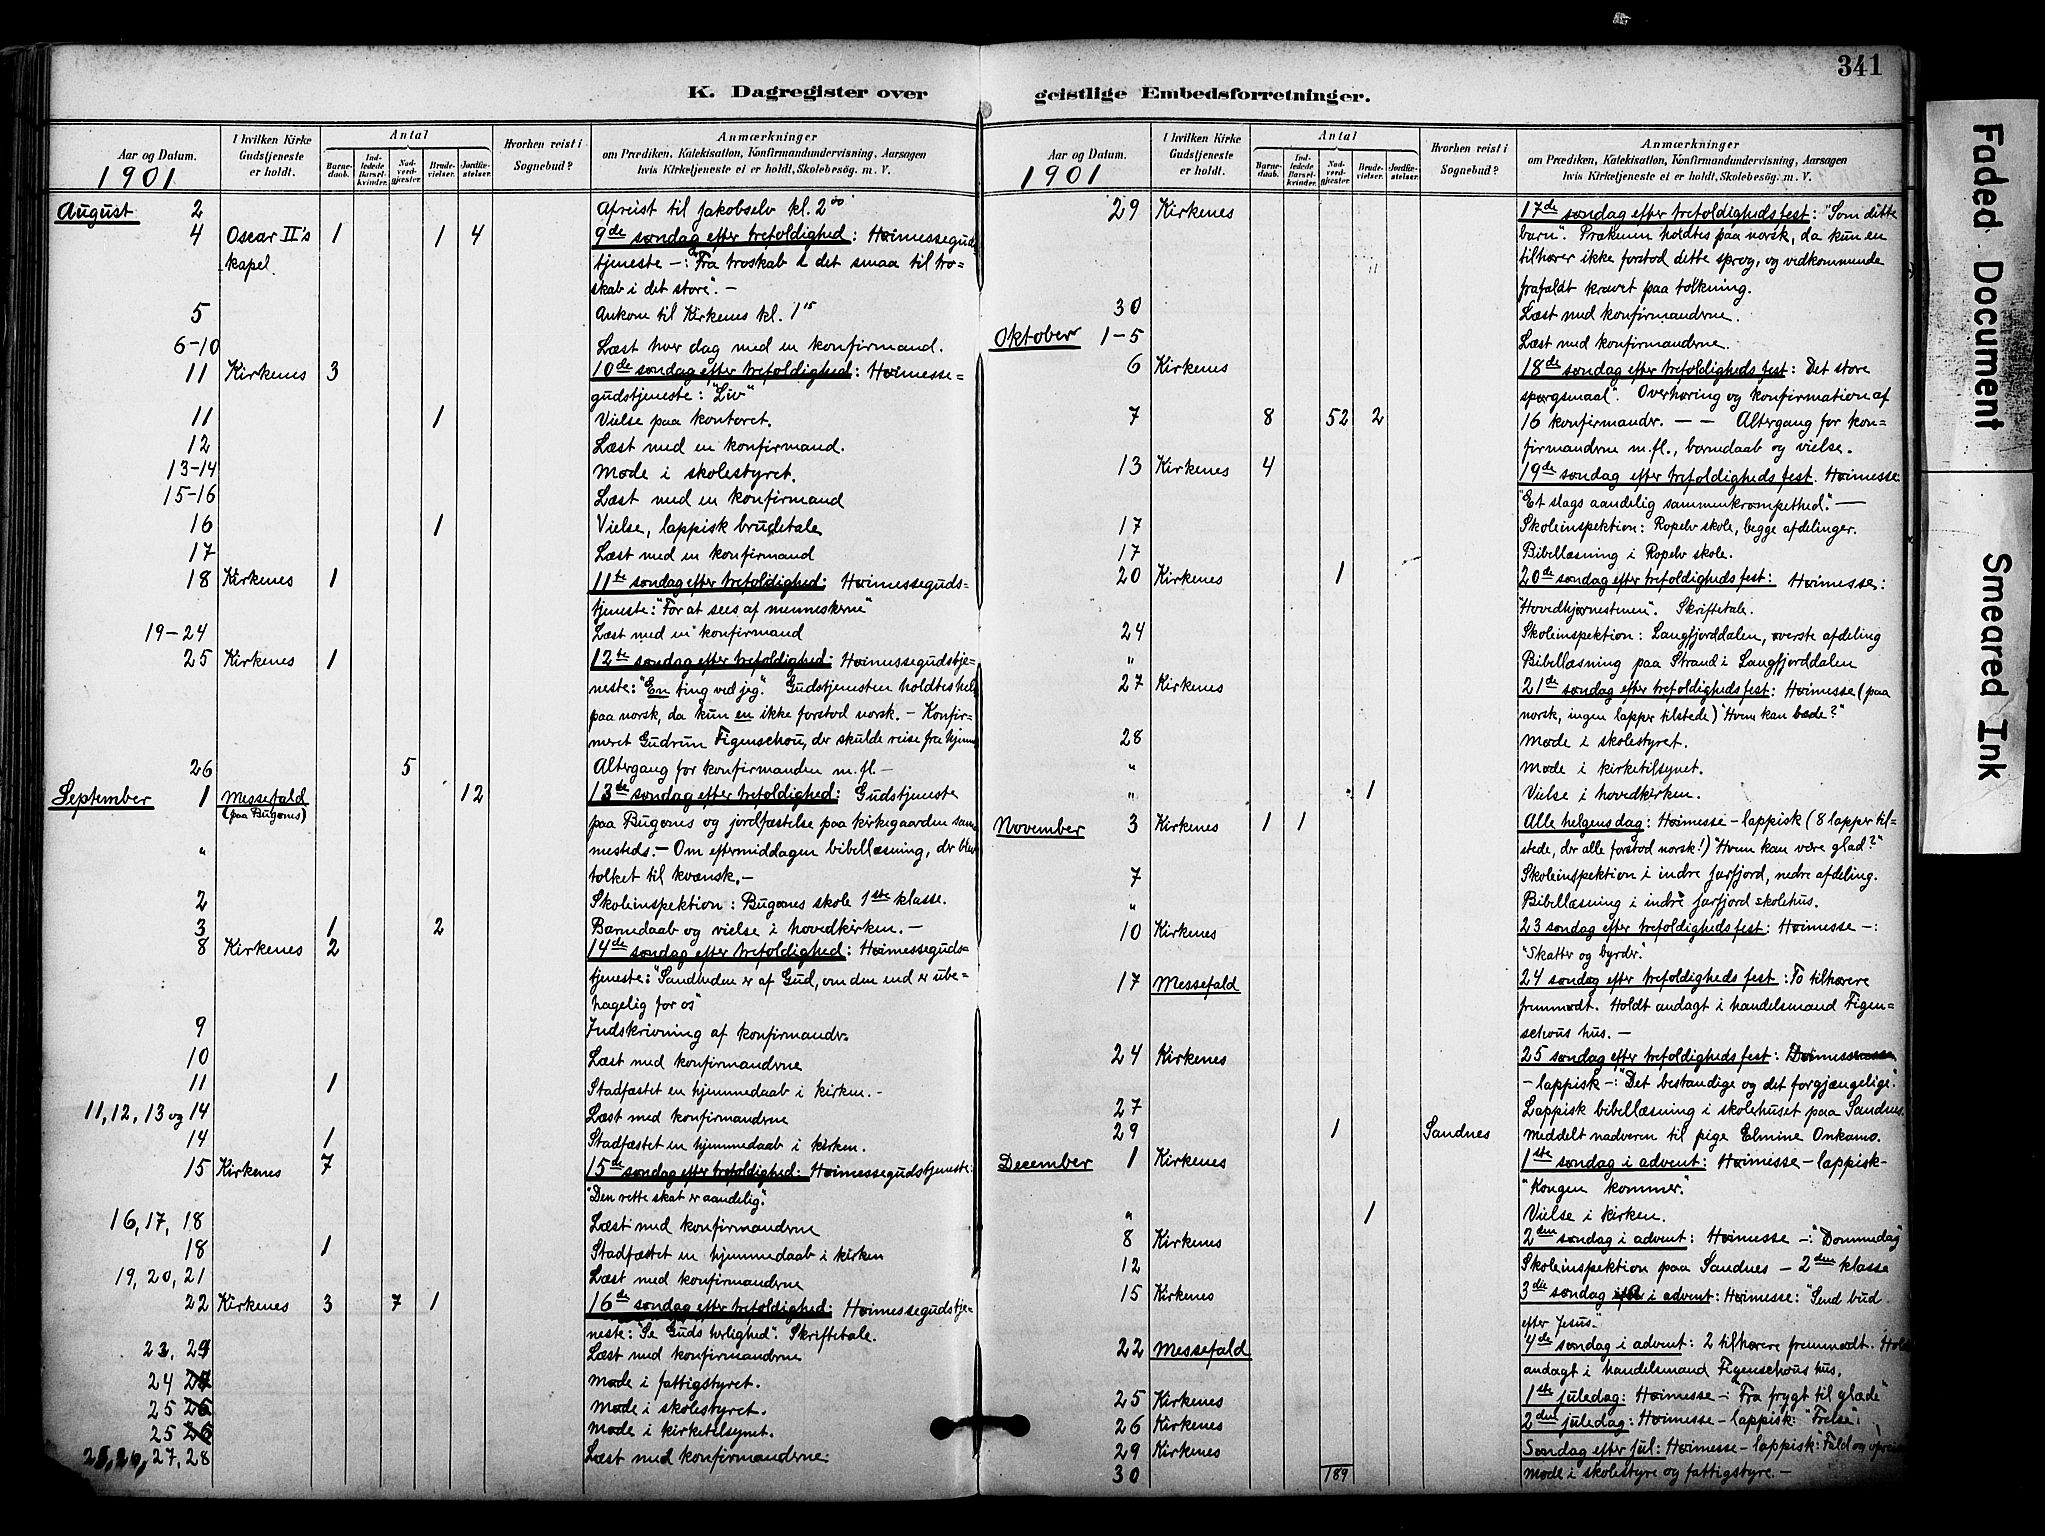 341
K. Dagregister over geistlige Embedsforretninger.
Aar og Datum.
1901
I hvilken Kirke Gudstjeneste er holdt.
Antal
Barne-daab.
Ind-ledede Barsel-kvinder.
Nad-verd-gjester.
Brude-vielser.
Jordfæ-stelser.
Hvorhen reist i Sognebud?
Anmærkninger
om Prædiken, Katekisation, Konfirmandundervisning, Aarsagen
hvis Kirketjeneste ei er holdt, Skolebesøg. m. V.
August 2 Afreist til Jakobselv kl. 2⁰⁰
4 Oscar II's 1 1 4 9de søndag efter trefoldighed: Høimessegud
kapel. tjeneste -: "Fra troskab i det smaa til tro=
skab i det store". -
5 Ankom til Kirkenes kl. 1¹⁵
6-10 Læst hver dag med en konfirmand.
11 Kirkenes 3 10de søndag efter trefoldighed: Høimesse=
gudstjeneste: "Liv"
11 1 Vielse paa kontoret.
12 Læst med en konfirmand.
13-14 Møde i skolestyret.
15-16 Læst med en konfirmand
16 1 Vielse, lappisk brudetale
17 Læst med en konfirmand
18 Kirkenes 1 11te søndag efter trefoldighed: Høimesseguds=
tjeneste: "For at sees af menneskerne"
19-24 Læst med en konfirmand
25 Kirkenes 1 12te søndag efter trefoldighed: Høimessegudstje=
neste: "En ting ved jeg". Gudstjenesten holdtes hel
paa norsk, da kun en ikke forstod norsk. - Konfir=
meret Gudrun Figenschou, der skulde reise fra hjem
26 5 Altergang for konfirmanden m.fl. -
September 1 Messefald 12 13de søndag efter trefoldighed: Gudstjeneste
(paa Bugønes) paa Bugønes og jordfæstelse paa kirkegaarden sam
" mesteds. - Om eftermiddagen bibellæsning, der blev
tolket til kvænsk. -
2 Skoleinspektion: Bugønes skole 1ste klasse.
3 1 2 Barnedaab og vielse i hovedkirken. -
8 Kirkenes 2 14de søndag efter trefoldighed: Høimesseguds=
tjeneste: "Sandheden er af Gud, om den end er ube=
hagelig for os"
9 Indskrivning af konfirmander.
10 Læst med konfirmanderne
11 1 Stadfæstet en hjemmedaab i kirken. -
11, 12, 13 og 14 Læst med konfirmanderne
14 1 Stadfæstet en hjemmedaab i kirken.
15 Kirkenes 7 15de søndag efter trefoldighed: Høimessegudstjeneste:
"Den rette skat er aandelig".
16, 17, 18 Læst med konfirmanderne
18 1 Stadfæstet en hjemmedaab i kirken
19, 20, 21 Læst med konfirmanderne
22 Kirkenes 3 7 1 16de søndag efter trefoldighed: Høimessegudstje=
neste: "Se Guds herlighed". Skriftetale.
23, 24 Læst med konfirmanderne
24 Møde i fattigstyret.
25 26 Møde i skolestyret.
25 26 Møde i kirketilsynet.
25, 26, 27, 28 Læst med konfirmanderne.
Aar og Datum.
1901
I hvilken Kirke Gudstjeneste er holdt.
Antal
Barne-daab.
Ind-ledede Barsel-kvinder.
Nad-verd-gjester.
Brude-vielser.
Jordfæ-stelser.
Hvorhen reist i Sognebud?
Anmærkninger
om Prædiken, Katekisation, Konfirmandundervisning, Aarsagen
hvis Kirketjeneste ei er holdt, Skolebesøg. m. V.
29 Kirkenes 17de søndag efter trefoldigheds fest: "Som dette
barn". Prækenen holdtes paa norsk, da kun en
tilhører ikke forstod dette sprog, og vedkommende
frafaldt kravet paa tolkning.
30 Læst med konfirmanderne.
Oktober 1-5 Læst med konfirmanderne.
6 Kirkenes 18de søndag efter trefoldigheds fest: Det store
spørgsmaal". Overhøring og konfirmation af
7 8 52 2 16 konfirmander. - - Altergang for kon=
firmanderne m.fl., barnedaab og vielse.
13 Kirkenes 4 19de søndag efter trefoldigheds fest. Høimesse
"Et slags aandelig sammenkrompethed". -
17 Skoleinspektion: Ropelv skole, begge afdelinger.
17 Bibellæsning i Ropelv skole.
20 Kirkenes 1 20de søndag efter trefoldigheds fest: Høimesse:
"Hovedhjørnestenen". Skriftetale.
24 Skoleinspektion: Langfjorddalen, øverste afdeling
" Bibellæsning paa Strand i Langfjorddalen
27 Kirkenes 21de søndag efter trefoldigheds fest: Høimesse (paa
norsk, ingen lapper tilstede) "Hvem kan bede?"
28 Møde i skolestyret.
" Møde i kirketilsynet.
" 1 Vielse i hovedkirken.
November 3 Kirkenes 1 1 Alle helgens dag: Høimesse - lappisk (8 lapper til=
stede, der alle forstod norsk!) "Hvem kan være glad?"
7 Skoleinspektion i indre Jarfjord, nedre afdeling.
" Bibellæsning i indre Jarfjord skolehus.
10 Kirkenes 23 søndag efter trefoldigheds fest: Høimesse -:
"Skatter og byrder".
17 Messefald 24 søndag efter trefoldigheds fest: To tilhørere
fremmødt. Holdt andagt i handelsmand Figen=
schous hus. -
24 Kirkenes 25 søndag efter trefoldigheds fest: Høimesse
- lappisk -: "Det bestandige og det forgjængelige".
27 Lappisk bibellæsning i skolehuset paa Sandnes.
29 1 Sandnes Meddelt nadveren til pige Elmine Onkamo.
December 1 Kirkenes 1ste søndag i advent: Høimesse - lappisk -
"Kongen kommer."
" 1 Vielse i kirken.
8 Kirkenes 2den søndag i advent: Høimesse -: "Dommedag"
12 Skoleinspektion paa Sandnes - 2den klasse
15 Kirkenes 3die søndag i advent: Høimesse: "Send bud
efter Jesus".
22 Messefald 4de søndag i advent: 2 tilhørere fremmødt. Holdt
andagt i handelsmand Figenschous hus.
25 Kirkenes 1ste juledag: Høimesse - "Fra frygt til glæde"
26 Kirkenes 2den juledag: Høimesse - lappisk: "Frelse".
29 Kirkenes Søndag efter jul: Høimesse - lappisk: "Fald og
30 189 Møde i skolestyre og fattigstyre. -
Faded Document
Smeared Ink